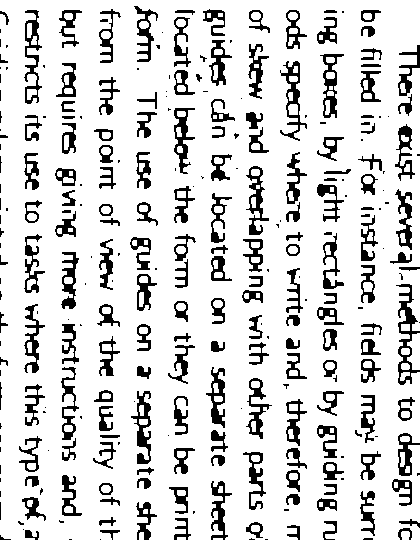 There exist several methods to design
be filled in. For instance, fields may be
ing boxes, by light rectangles or by guiding
ods specify where to write and, therefore,
of skew and overlapping with other parts
guides can be located on a separate sheet
located below the form or they can be
form. The use of guides on a separate
from the point of view of the quality of
but requires giving more instructions and,
restricts its use to tasks where this type of